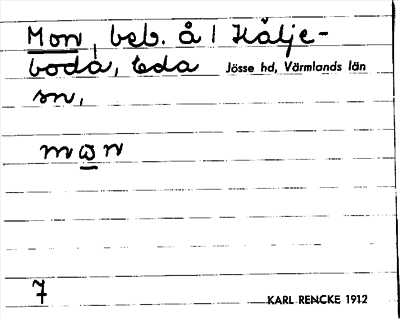 Mon, beb. å 1 Kälje-
boda, Eda Jösse hd, Värmlands län
sn,
mꞷ̲n
7
KARL RENCKE 1912